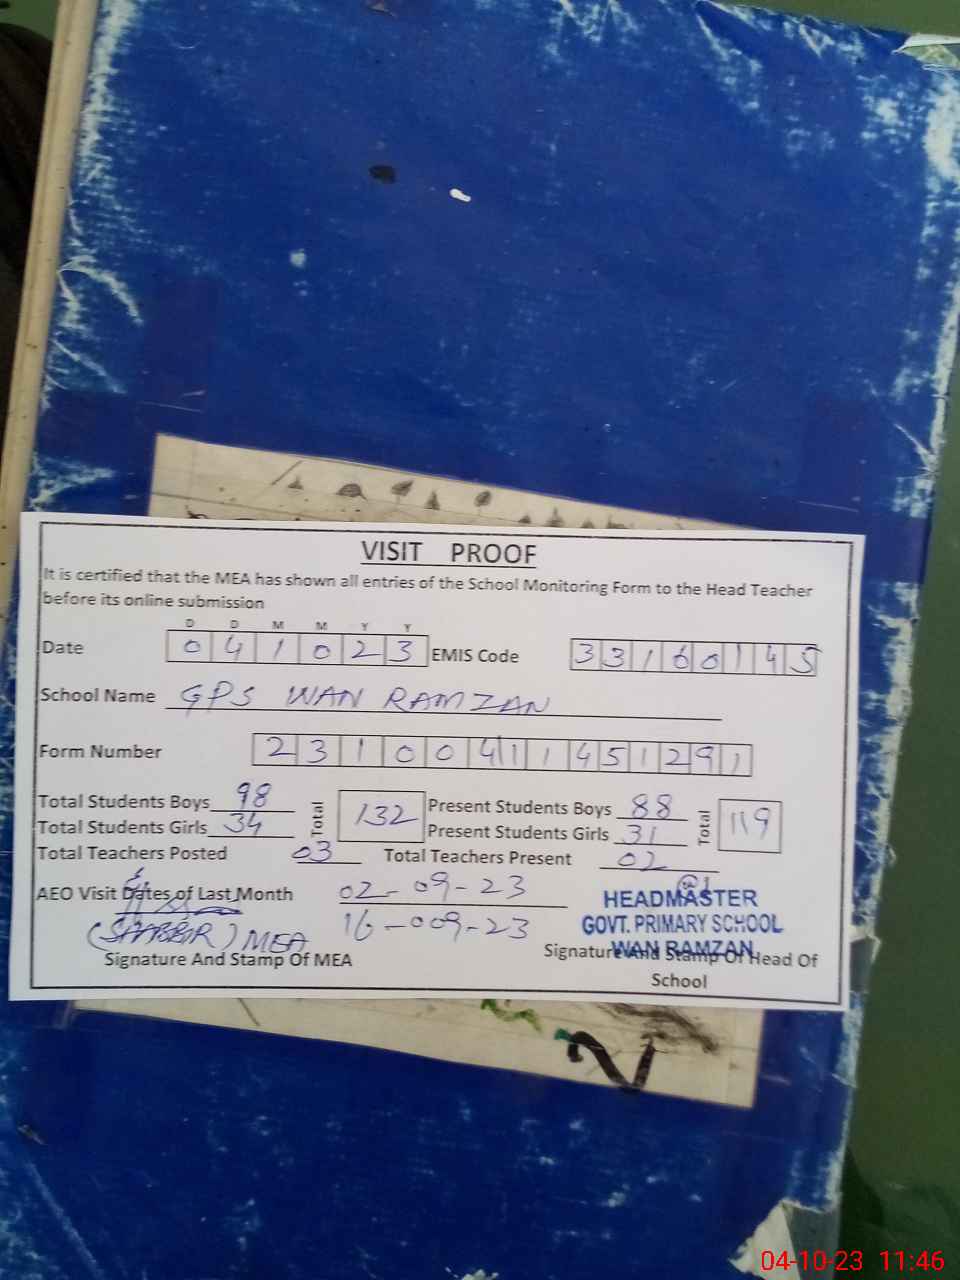 VISIT PROOF
It is certified that the MEA has shown all entries of the School Monitoring Form to the Head Teacher
before its online submission
D D M M Y Y
Date 0 4 1 0 2 3 EMIS Code 3 3 1 6 0 1 4 5
School Name GPS WAN RAMZAN
Form Number 2 3 1 0 0 4 1 1 4 5 1 2 9 1
Total Students Boys 98 Total 132 Present Students Boys 88 Total 119
Total Students Girls 34 Present Students Girls 31
Total Teachers Posted 03 Total Teachers Present 02
AEO Visit Dates of Last Month 02-09-23
16-009-23
HEADMASTER
GOVT. PRIMARY SCHOOL
WAN RAMZAN
(SHABBIR) MEA
Signature And Stamp Of MEA
Signature And Stamp Of Head Of
School
04-10-23 11:46